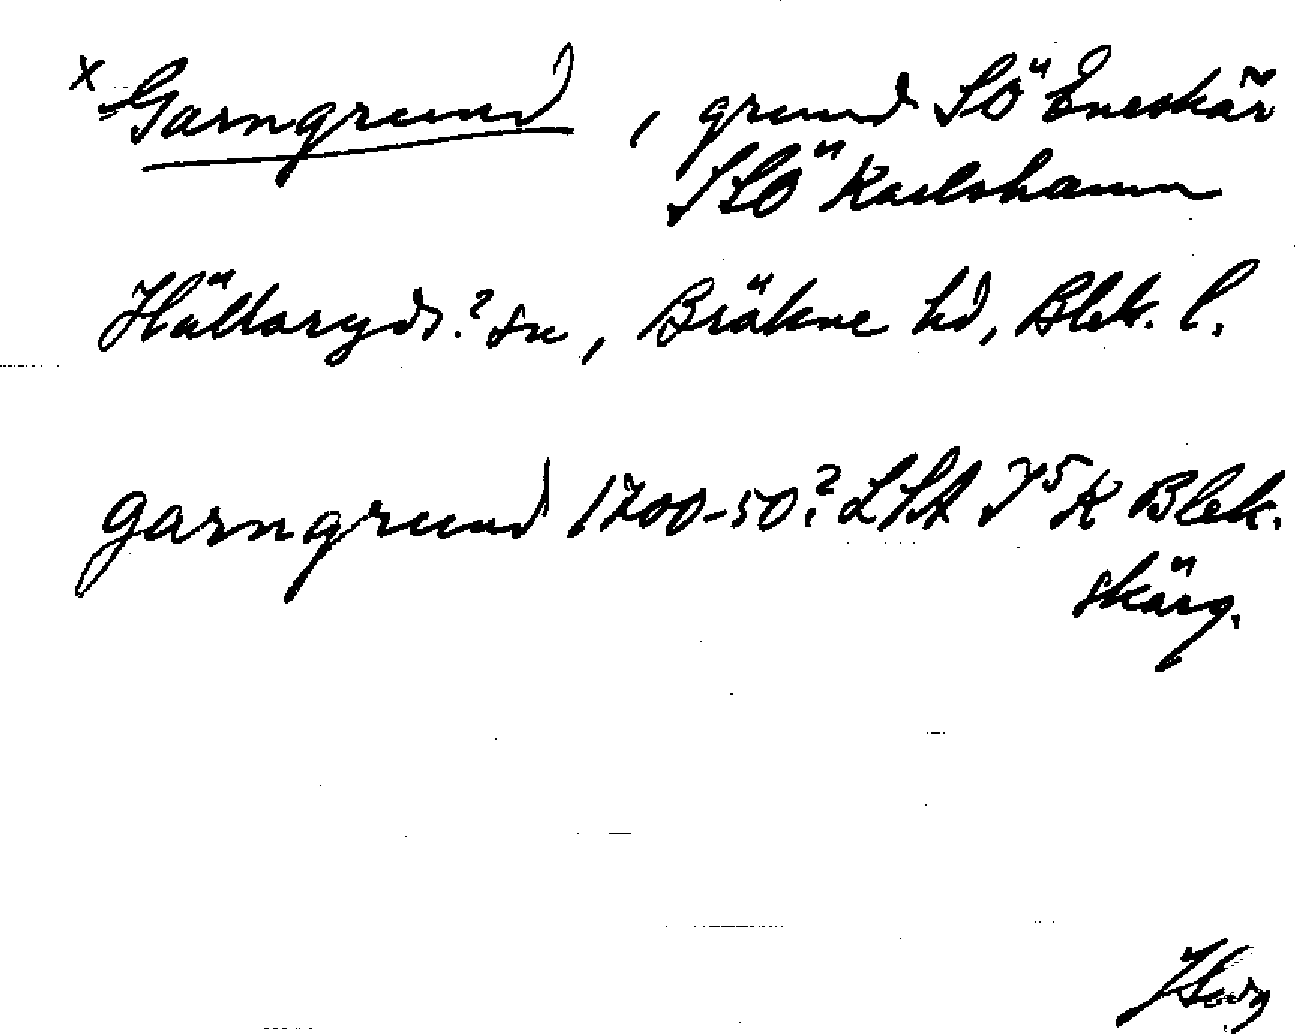 x Garngrund, grund SÖ Eneskär
SSÖ Karlshamn
Hällaryds? sn, Bräkne hd, Blek. l.
garngrund 1700-50? LSA Blek.
skärg.